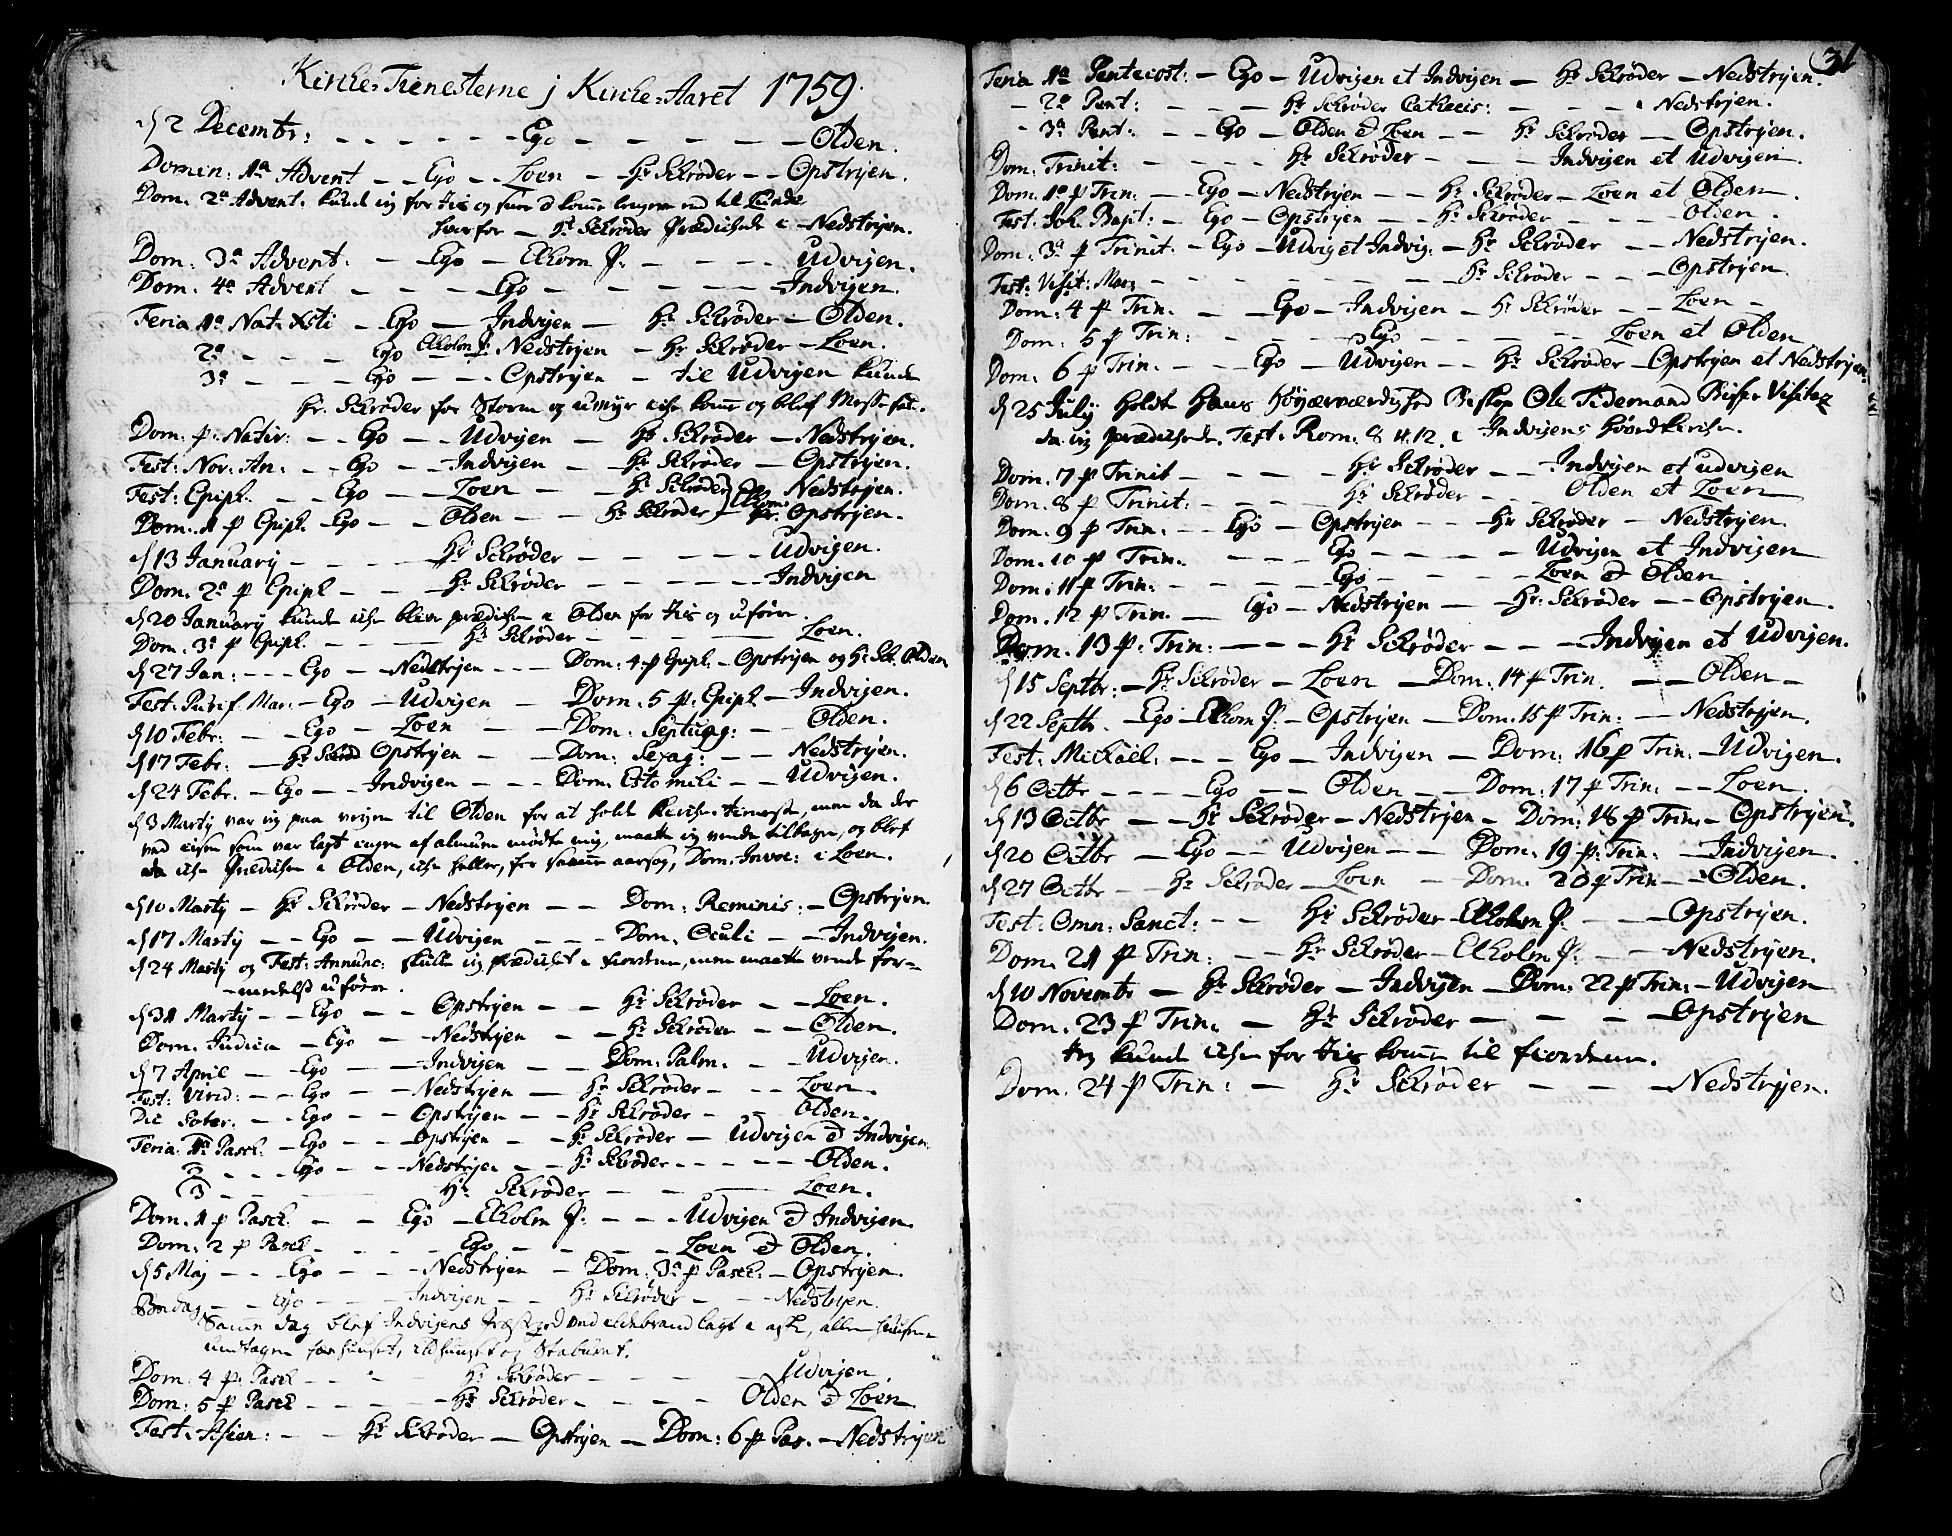 Kirche-Tienesterne j Kirche-Aaret 1759.
d 2 Decembr: - - - - - - Ego - - - - - - Olden.
Domin: 1a Advent - - Ego - - Loen - Hr Schrøder - - Opstryen.
Dom. 2a Advent. kund ieg for Iis og komme til
hvorfor - Hr Schrøder Prædichede i - Nedstryen.
Dom: 3a Advent. - Ego - Elholm P: - - - - Udvigen.
Dom: 4a Advent - - - Ego - - - - - - Indvigen.
Feria 1a Nat. Xsti - Ego - Indvigen - Hr Schrøder - Olden.
2a - - - - Ego Elholm P: Nedstryen - Hr Schrøder - Loen.
3a - - - - Ego - - - Opstryen - til Udvigen kunde
Hr. Schrøder for Storm og iche komme og blef Messefal.
Dom: p. Nativ: - - Ego - - Udvigen - Hr Schrøder - Nedstryen.
Fest: Nov: An: - - Ego - - Indvigen - Hr Schrøder - Opstryen.
Fest: Epiph. - - Ego - - Loen - - Hr Schrøder Nedstryen.
Dom. 1 p Epiph. - Ego - - Olden - - Hr Schrøder Opstryen.
d 13 January - - - - Hr Schrøder - - - - - Udvigen.
Dom: 2a p Epiph - - - Hr Schrøder - - - - - Indvigen
d 20 January kunde iche blive prædichen i Olden for Iis og uføre.
Dom. 3a p Epiph. - - - - Hr Schrøder - - - - - Loen.
d 27 Jan: - - - Ego - - Nedstryen - - - Dom: 4 p Epiph. - Opstryen og Hr Sch. Olden
Fest: Purif. Mar. - Ego - Udvigen - Dom: 5 p. Epiph - Indvigen.
d 10 Febr: - - Ego - - Loen - - Dom: Septuag: - - Olden.
d 17 Febr: - Hr Schrød Opstryen - - Dom: Sexag: - - Nedstryen.
d 24 Febr. - Ego - - Indvigen - - - Dom: Esto mihi - - Udvigen.
d 3 Marty var ieg paa veyen til Olden for at holde Kirche-tieneste, men da der
ved som var lagt ingen af almuen mødte mig, maatte ieg vende tilbage, og blef
iche Prædichen i Olden, iche heller, for samme aarsag, Dom. Invoc: i Loen.
d 10 Marty - Hr Schrøder - Nedstryen - - Dom: Reminis: - Opstryen
d 17 Marty - - Ego - - Udvigen - - - Dom. Oculi - - Indvigen.
d 24 Marty og Fest: Annunc: skulle ieg prædichet i fiordene, men maatte vende for-
-medelst uføre.
d 31 Marty - - Ego - - Opstryen - - Hr Schrøder - - Loen.
Dom. Judica - Ego - - Nedstryen - - Hr Schrøder - - Olden.
d 7 April - - Ego - - - Indvigen - - Dom: Palm. - - Udvigen.
Fest: Virid: - - Ego - - - Nedstryen - - Hr Schrøder - - - Loen.
Die Soter. - - Ego - - - Opstryen - - Hr Schrøder - - Olden.
Feria 1a Pasch. - Ego - - - Opstryen - - Hr Schrøder - Udvigen & Indvigen
2 - - - Ego - - - Nedstryen - - Hr Schrøder - - - - - Olden.
3 - - - - - - Hr Schrøder - - - - Loen.
Dom. 1 p Pasch. - - Ego - Elholm P: - - - Udvigen & Indvigen.
Dom: 2 p Pasch - - - - Ego - - - - - Loen & Olden.
d 5 Maj - - - Ego - - - Nedstryen - Dom: 3a p Pasch. - Opstryen.
Bondag - - Ego - - - - Indvigen - - Hr Schrøder - - - Nedstryen.
Samme dag blef Indvigens Præstegd ved ildebrand lagt i aske, alle
undtagen fæehuuset, ildhuuset og Staburet.
Dom. 4 p. Pasch - - - - Hr Schrøder - - - - - Udvigen.
Dom: 5 p Pasch - - - - - Hr Schrøder - - - - Olden & Loen.
Fest: Ascen: - - - Hr Schrøder - Opstryen - Dom: 6 p Pas. - Nedstryen
31
Feria 1a Pentecost: - Ego - Udvigen et Indvigen - Hr Schrøder - Nedstryen.
- 2a Pent: - - - Hr Schrøder Cathecis: - - - Nedstryen.
- 3a Pent: - - Ego - Olden & Loen - - Hr Schrøder - Opstryen.
Dom: Trinit: - - - - Hr Schrøder - - - - Indvigen et Udvigen.
Dom. 1a p Trin: - Ego - Nedstryen - - Hr Schrøder - Loen et Olden
Fest: Joh. Bapt: - Ego - Opstryen - - Hr Schrøder - - - Olden.
Dom: 3a p Trinit. - Ego - Udvig et Indvig: - Hr Schrøder - - Nedstryen.
Fest: Visit: Mar: - - - - - - Hr Schrøder - - - Opstryen.
Dom: 4 p Trin. - - - Ego - Indvigen - Hr Schrøder - - Loen -
Dom: 5 p Trin: - - - - Ego - - - - - - Loen et Olden
Dom: 6 p Trin. - - - Ego - Udvigen - - Hr Schrøder - Opstryen et Nedstryen.
d 25 July holdt Hans Höyærværdighed Biskop Ole Tidemand Visitaz
da ieg prædichede. Text: Rom: 8 v. 12. i Indvigens
Dom. 7 p Trinit - - - - Hr Schrøder - - Indvigen et udvigen
Dom. 8 p Trinit: - - - - Hr Schrøder - - - Olden et Loen
Dom: 9 p Trin: - - Ego - Opstryen - - Hr Schrøder - Nedstryen.
Dom. 10 p Trin. - - - Ego - - - - - Udvigen et Indvigen
Dom: 11 p Trin: - - - - Ego - - - - - Loen & Olden
Dom. 12 p Trin. - - Ego - Nedstryen - Hr. Schrøder - - Opstryen.
Dom. 13 p. Trin: - - - - Hr Schrøder - - - Indvigen et Udvigen.
d 15 Septbr: - Hr Schrøder - Loen - Dom. 14 p Trin. - - Olden -
d 22 Septbr. - Ego - Elholm P: - Opstryen - Dom. 15 p Trin: - Nedstryen.
Fest: Michaël: - - - Ego - Indvigen - Dom: 16 p Trin: - Udvigen.
d 6 Octbr - - - - Ego - - Olden - - Dom: 17 p Trin: - - Loen.
d 13 Octbr - - Hr Schrøder - Nedstryen - Dom: 18 p Trin: - Opstryen.
d 20 Octbr - Ego - - Udvigen - - Dom. 19 p. Trin: - Indvigen.
d 27 Octbr - - Hr Schrøder - Loen - Dom. 20 p Trin - - Olden.
Fest: Omn: Sanct: - - Hr Schrøder Elholm P. - - - Opstryen.
Dom. 21 p Trin: - - Hr Schrøder - Elholm P: - - - Nedstryen.
d 10 Novembr - Hr Schrøder - Indvigen - Dom: 22 p Trin: - Udvigen
Dom. 23 p Trin. - Hr Schrøder - - - - Opstryen
Ieg kunde iche for Iis komme til fiordene.
Dom. 24 p Trin: - Hr Schrøder - - - Nedstryen.